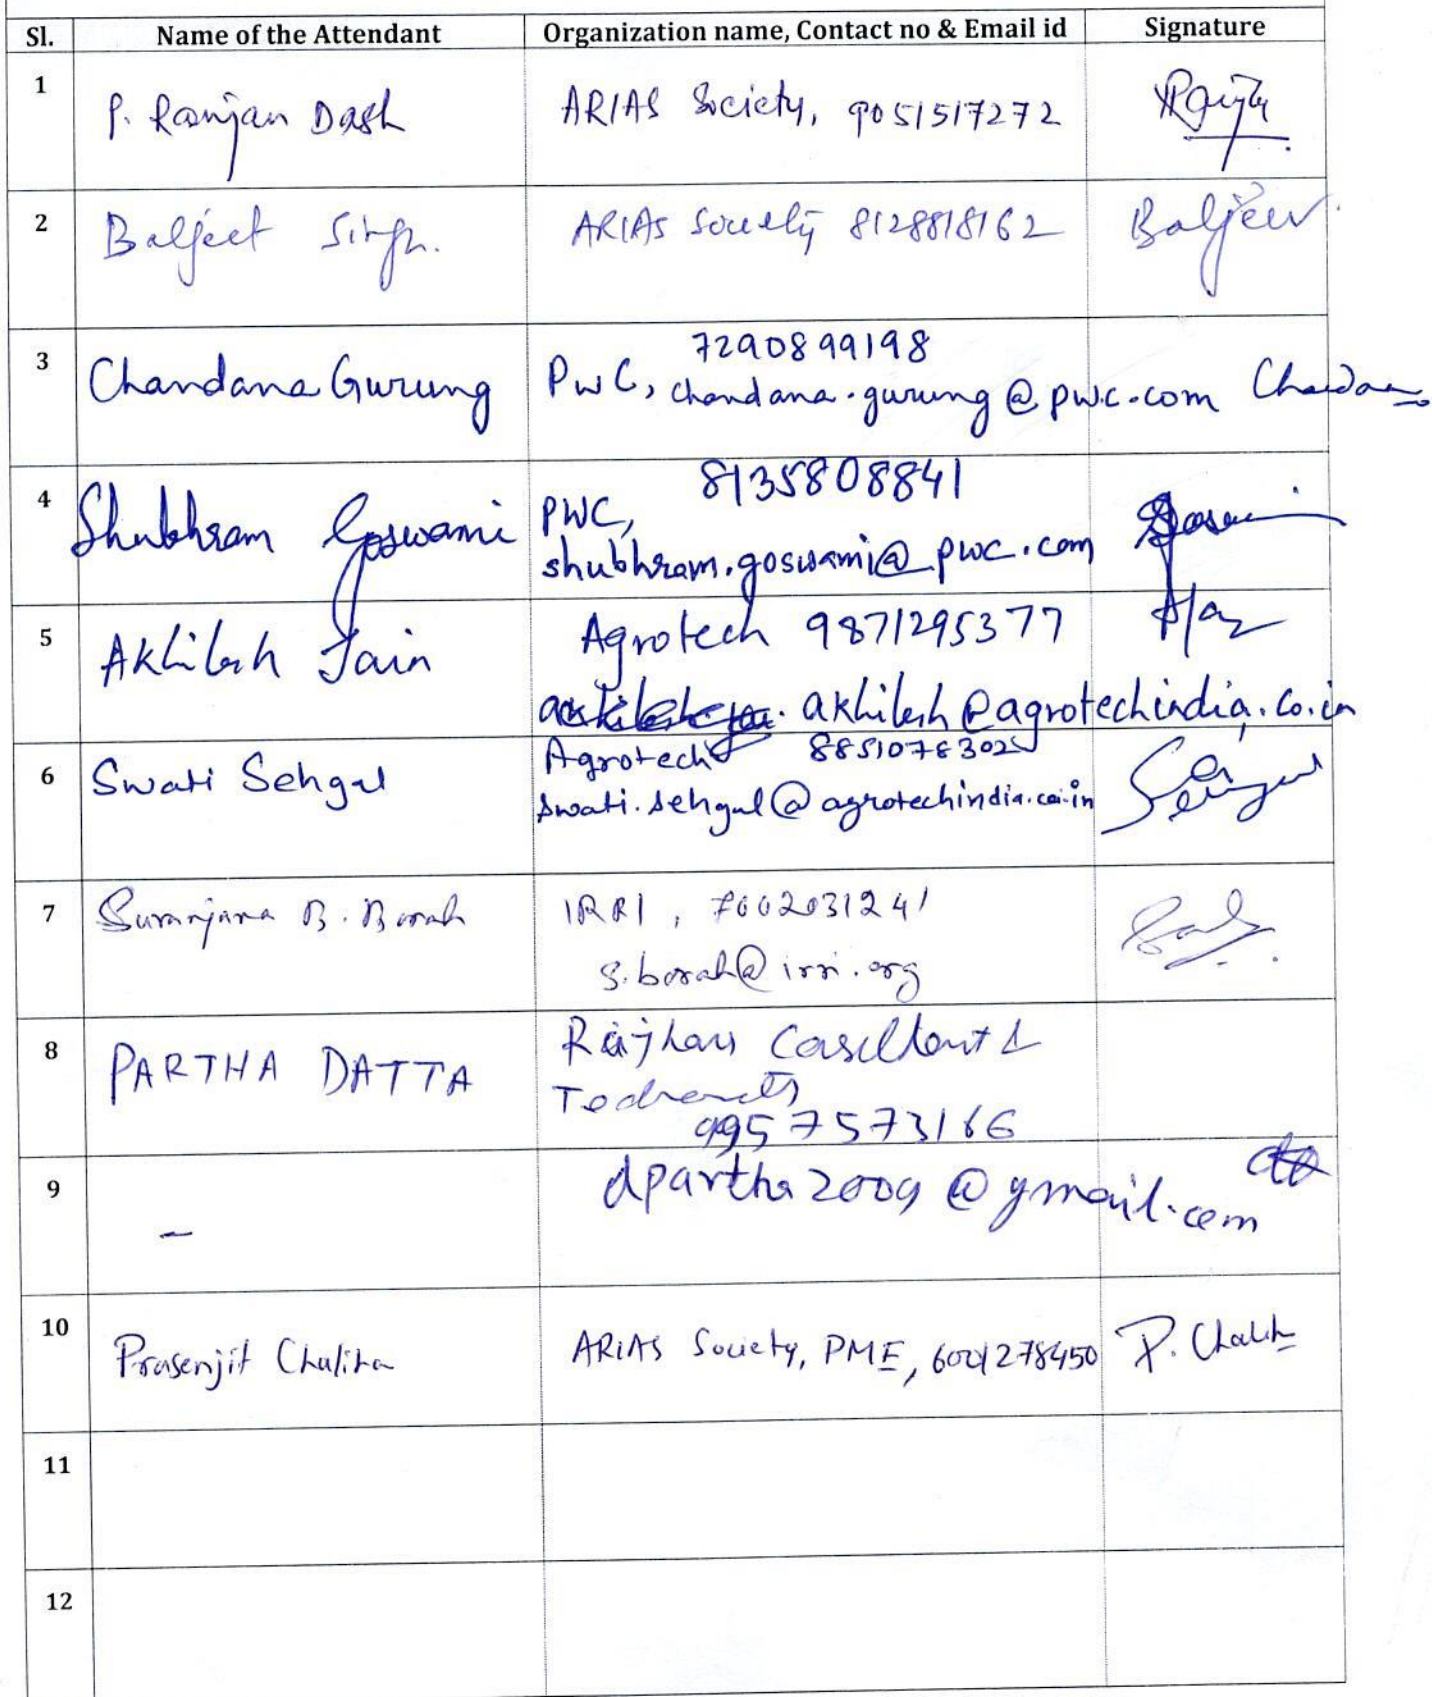 Sl. Name of the Attendant Organization name, Contact no & Email id Signature
1 P. Ranjan Dash ARIAS Society, 9051517272
2 Baljeet Singh. ARIAS Society 8128818162 Baljeet
3 Chandana Gurung 7290899198
PwC, chandana.gurung@pwc.com Chandana
4 Shubhram Goswami 8135808841
PWC,
shubhram.goswami@pwc.com
5 Akhilesh Jain Agrotech 9871295377
akhilesh@agrotechindia.co.in
6 Swati Sehgal Agrotech 8851078302
swati.sehgal@agrotechindia.co.in Sehgal
7 Suranjana B. Borah IRRI, 7002031241
s.borah@irri.org
8 PARTHA DATTA Rajhans
9957573166
9 – dpartha2009@gmail.com
10 Prasenjit Chaliha ARIAS Society, PME, 6001278450 P. Chalih
11
12